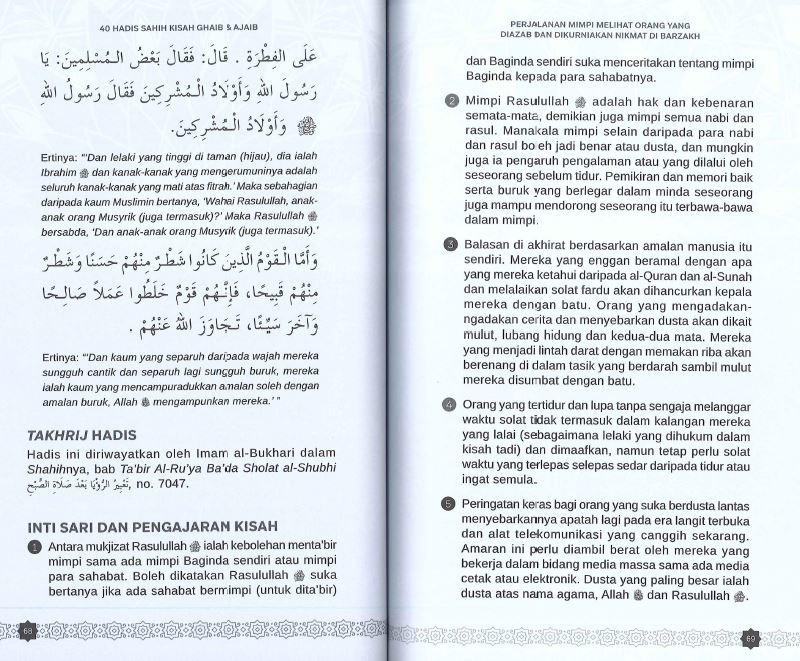 40 HADIS SAHIH KISAH GHAIB & AJAIB
عَلَى الفِطْرَةِ . قَالَ: فَقَالَ بَعْضُ الْمُسْلِمِينَ: يَا
رَسُولَ اللهِ وَأَوْلَادُ الْمُشْرِكِينَ فَقَالَ رَسُولُ اللهِ
ﷺ وَأَوْلَادُ الْمُشْرِكِينَ.
Ertinya: "'Dan lelaki yang tinggi di taman (hijau), dia ialah
Ibrahim dan kanak-kanak yang mengerumuninya adalah
seluruh kanak-kanak yang mati atas fitrah.' Maka sebahagian
daripada kaum Muslimin bertanya, 'Wahai Rasulullah, anak-
anak orang Musyrik (juga termasuk)?' Maka Rasulullah ﷺ
bersabda, 'Dan anak-anak orang Musyrik (juga termasuk).'
وَأَمَّا الْقَوْمُ الَّذِينَ كَانُوا شَطْرٌ مِنْهُمْ حَسَنًا وَشَطْرٌ
مِنْهُمْ قَبِيحًا، فَإِنَّهُمْ قَوْمٌ خَلَطُوا عَمَلًا صَالِحًا
وَآخَرَ سَيِّئًا، تَجَاوَزَ اللهُ عَنْهُمْ .
Ertinya: "'Dan kaum yang separuh daripada wajah mereka
sungguh cantik dan separuh lagi sungguh buruk, mereka
ialah kaum yang mencampuradukkan amalan soleh dengan
amalan buruk, Allah mengampunkan mereka.' "
TAKHRIJ HADIS
Hadis ini diriwayatkan oleh Imam al-Bukhari dalam
Shahihnya, bab Ta'bir Al-Ru'ya Ba'da Sholat al-Shubhi
تَعْبِيْرُ الرُّؤْيَا بَعْدَ صَلَاةِ الصُّبْحِ, no. 7047.
INTI SARI DAN PENGAJARAN KISAH
1 Antara mukjizat Rasulullah ﷺ ialah kebolehan menta'bir
mimpi sama ada mimpi Baginda sendiri atau mimpi
para sahabat. Boleh dikatakan Rasulullah ﷺ suka
bertanya jika ada sahabat bermimpi (untuk dita'bir)
68
PERJALANAN MIMPI MELIHAT ORANG YANG
DIAZAB DAN DIKURNIAKAN NIKMAT DI BARZAKH
dan Baginda sendiri suka menceritakan tentang mimpi
Baginda kepada para sahabatnya.
2 Mimpi Rasulullah ﷺ adalah hak dan kebenaran
semata-mata, demikian juga mimpi semua nabi dan
rasul. Manakala mimpi selain daripada para nabi
dan rasul boleh jadi benar atau dusta, dan mungkin
juga ia pengaruh pengalaman atau yang dilalui oleh
seseorang sebelum tidur. Pemikiran dan memori baik
serta buruk yang berlegar dalam minda seseorang
juga mampu mendorong seseorang itu terbawa-bawa
dalam mimpi.
3 Balasan di akhirat berdasarkan amalan manusia itu
sendiri. Mereka yang enggan beramal dengan apa
yang mereka ketahui daripada al-Quran dan al-Sunah
dan melalaikan solat fardu akan dihancurkan kepala
mereka dengan batu. Orang yang mengadakan-
ngadakan cerita dan menyebarkan dusta akan dikait
mulut, lubang hidung dan kedua-dua mata. Mereka
yang menjadi lintah darat dengan memakan riba akan
berenang di dalam tasik yang berdarah sambil mulut
mereka disumbat dengan batu.
4 Orang yang tertidur dan lupa tanpa sengaja melanggar
waktu solat tidak termasuk dalam kalangan mereka
yang lalai (sebagaimana lelaki yang dihukum dalam
kisah tadi) dan dimaafkan, namun tetap perlu solat
waktu yang terlepas selepas sedar daripada tidur atau
ingat semula.
5 Peringatan keras bagi orang yang suka berdusta lantas
menyebarkannya apatah lagi pada era langit terbuka
dan alat telekomunikasi yang canggih sekarang.
Amaran ini perlu diambil berat oleh mereka yang
bekerja dalam bidang media massa sama ada media
cetak atau elektronik. Dusta yang paling besar ialah
dusta atas nama agama, Allah dan Rasulullah ﷺ.
69